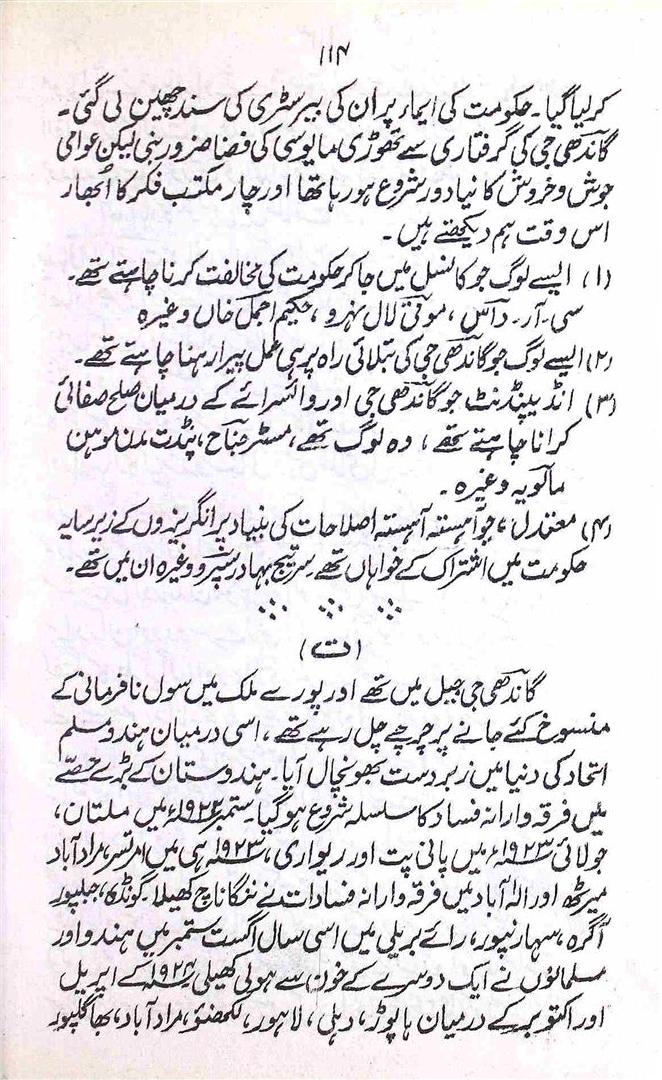 ۱۱۴
کرلیا گیا۔ حکومت کی ایماء پر ان کی بیرسٹری کی سند چھین لی گئی۔
گاندھی جی کی گرفتاری سے تھوڑی مایوسی کی فضا ضرور بنی لیکن عوامی
جوش و خروش کا نیا دور شروع ہو رہا تھا اور چار مکتب فکر کا اُبھار
اس وقت ہم دیکھتے ہیں۔
(۱) ایسے لوگ جو کانسل میں جا کر حکومت کی مخالفت کرنا چاہتے تھے۔
سی۔ آر۔ داس، موتی لال نہرو، حکیم اجمل خاں وغیرہ
(۲) ایسے لوگ جو گاندھی جی کی بتلائی راہ پر ہی عمل پیرا رہنا چاہتے تھے۔
(۳) انڈیپنڈنٹ جو گاندھی جی اور وائسرائے کے درمیان صلح صفائی
کرانا چاہتے تھے، وہ لوگ تھے، مسٹر جناح، پنڈت مدن موہن
مالویہ وغیرہ۔
(۴) معتدل، جو آہستہ آہستہ اصلاحات کی بنیاد پر انگریزوں کے زیر سایہ
حکومت میں اشتراک کے خواہاں تھے۔ سر تیج بہادر سپرو وغیرہ ان میں تھے۔
(ت)
گاندھی جی جیل میں تھے اور پورے ملک میں سول نافرمانی کے
منسوخ کئے جانے پر چرچے چل رہے تھے، اسی درمیان ہندو مسلم
اتحاد کی دنیا میں زبردست بھونچال آیا۔ ہندوستان کے بڑے حصّے
میں فرقہ وارانہ فساد کا سلسلہ شروع ہو گیا۔ ستمبر ۱۹۲۲ء میں ملتان،
جولائی ۱۹۲۳ء میں پانی پت اور ریواری، ۱۹۲۳ء ہی میں امرتسر، مرادآباد
میرٹھ اور الہٰ آباد میں فرقہ وارانہ فسادات نے ننگا ناچ کھیلا۔ گونڈہ، جبلپور
آگرہ، سہارنپور، رائے بریلی میں اسی سال اگست ستمبر میں ہندو اور
مسلمانوں نے ایک دوسرے کے خون سے ہولی کھیلی ۱۹۲۴ء کے اپریل
اور اکتوبر کے درمیان ہاپوڑ، دہلی، لاہور، لکھنؤ، مرادآباد، بھاگلپور